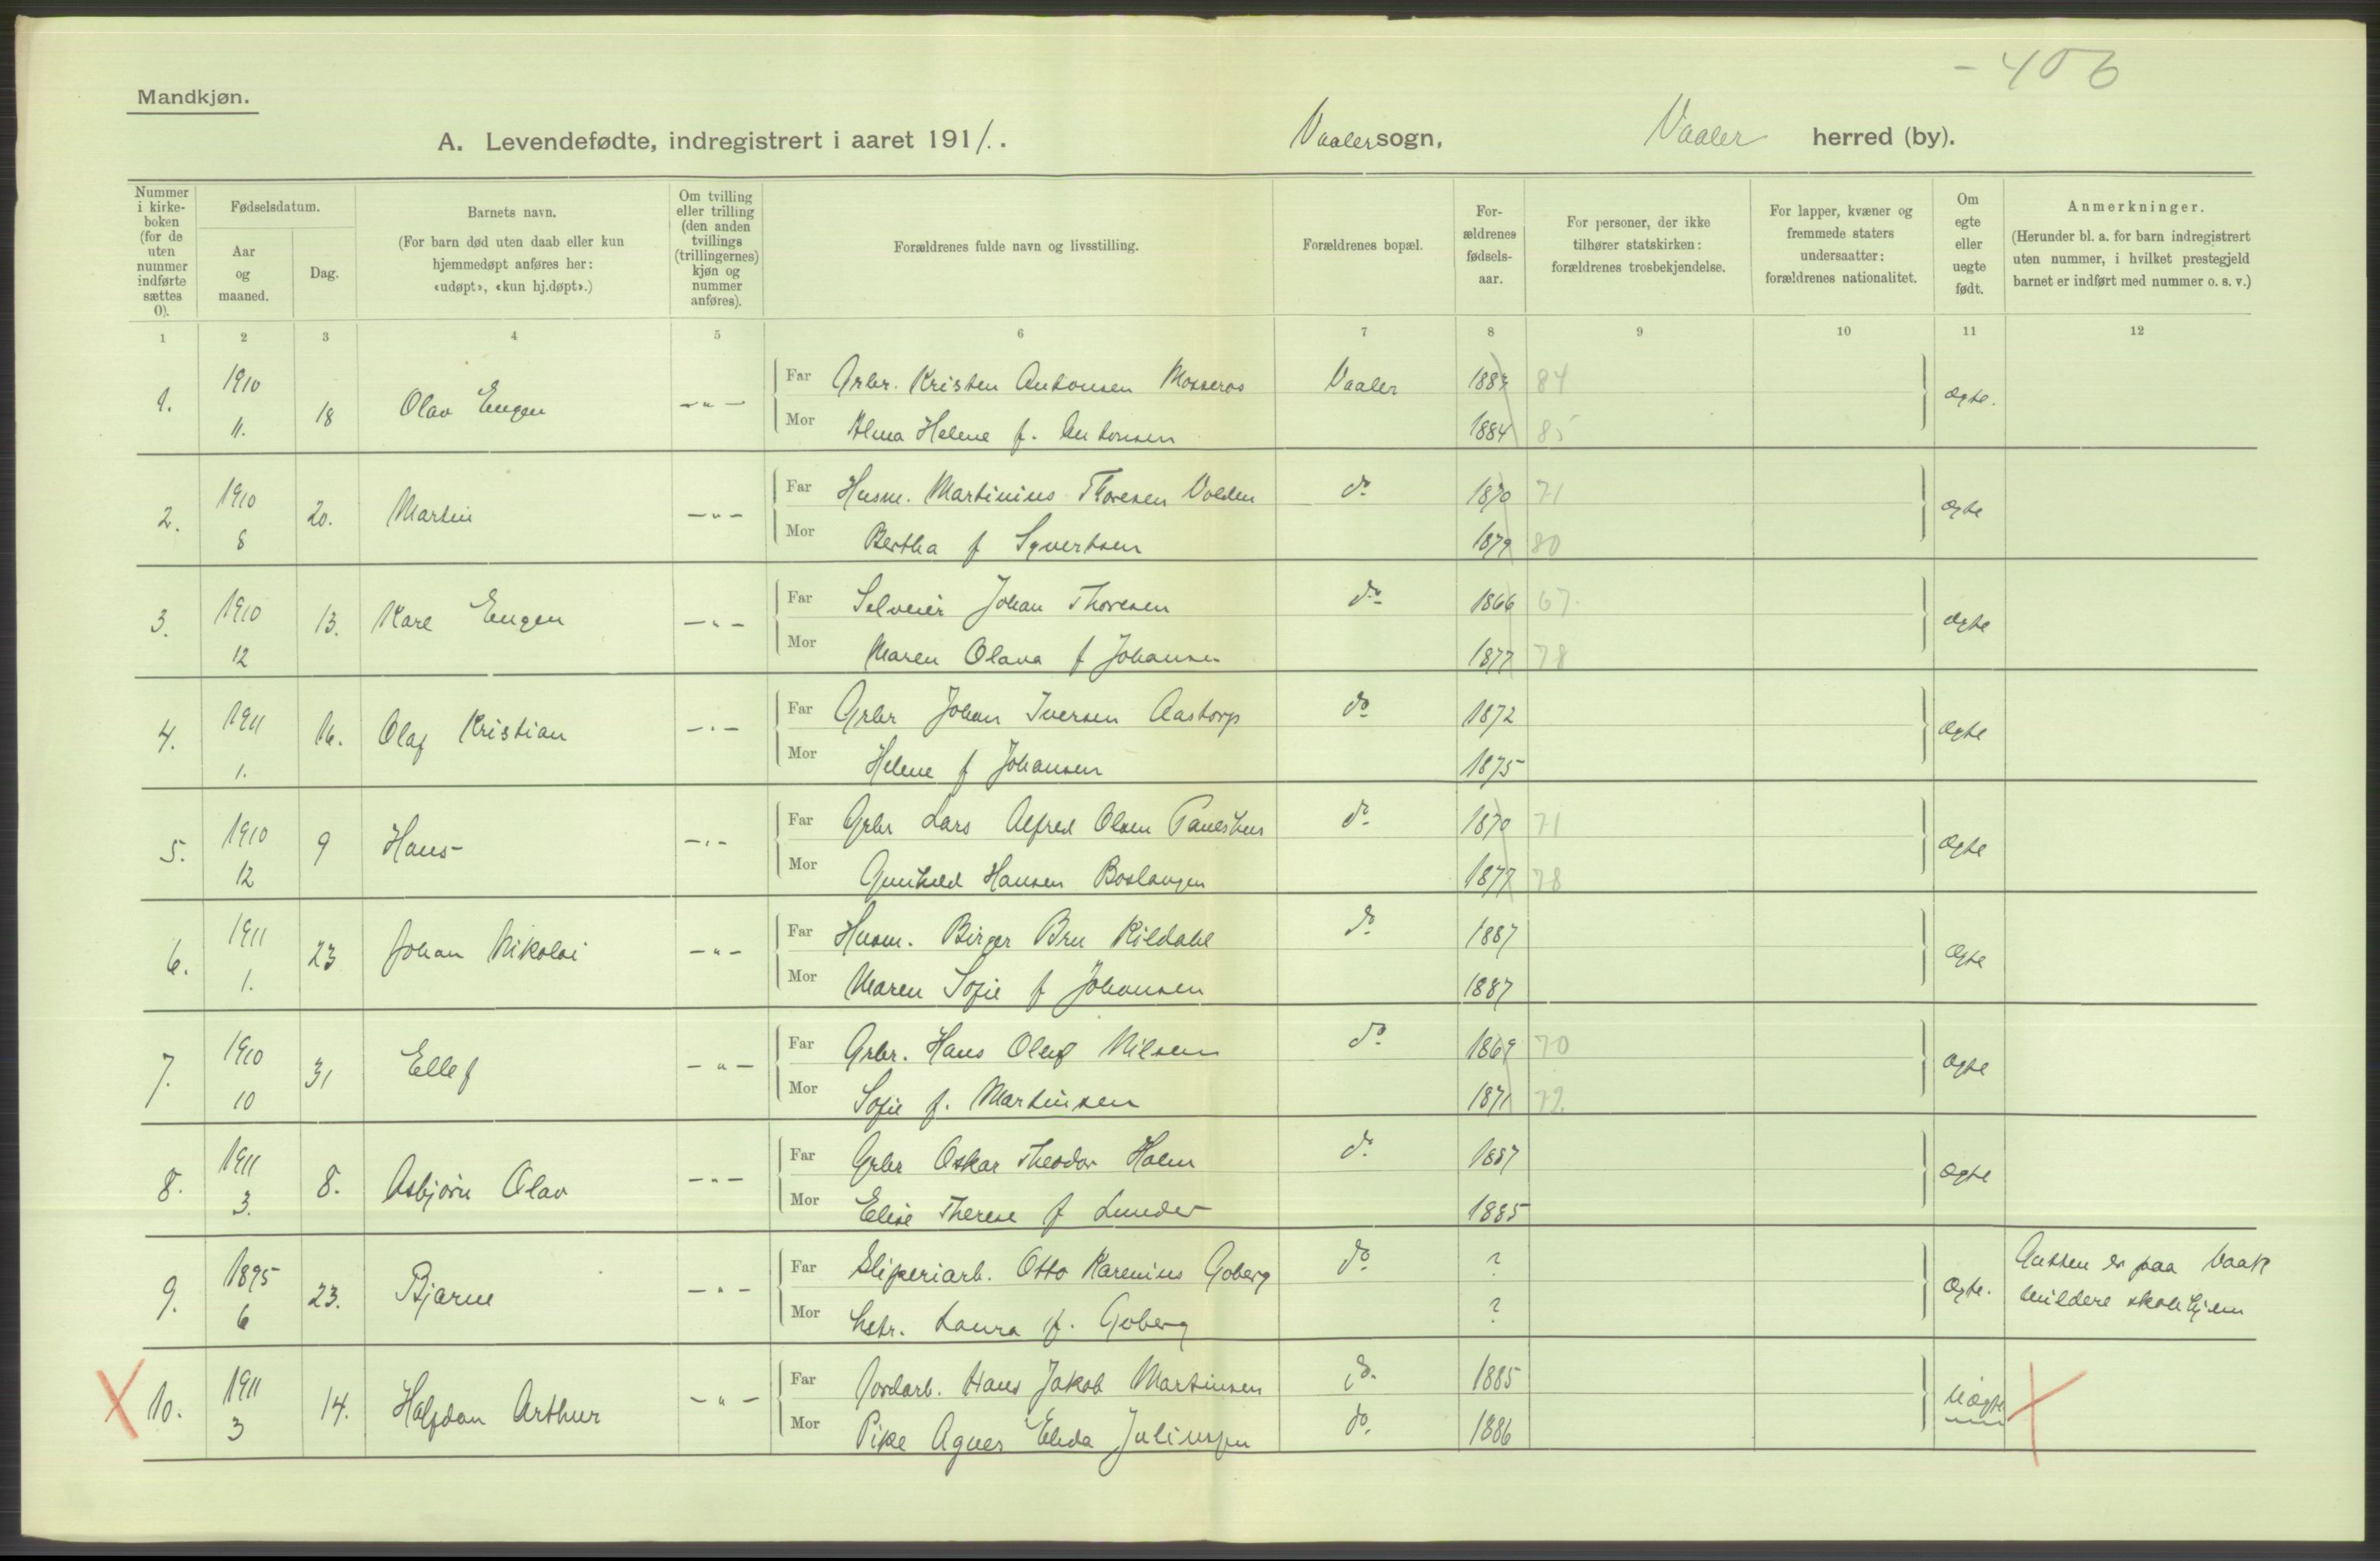 - 406
Mandkjøn.
A. Levendefødte, indregistrert i aaret 1911. Vaaler sogn, Vaaler herred (by).
Nummer i kirke-boken (for de uten nummer indførte sættes 0).
Fødselsdatum.
Aar og maaned.
Dag.
Barnets navn.
(For barn død uten daab eller kun hjemmedøpt anføres her: «udøpt», «kun hj.døpt».)
Om tvilling eller trilling (den anden tvillings (trillingernes) kjøn og nummer anføres).
Forældrenes fulde navn og livsstilling.
Forældrenes bopæl.
For-ældrenes fødsels-aar.
For personer, der ikke tilhører statskirken: forældrenes trosbekjendelse.
For lapper, kvæner og fremmede staters undersaatter: forældrenes nationalitet.
Om egte eller uegte født.
Anmerkninger.
(Herunder bl. a. for barn indregistrert uten nummer, i hvilket prestegjeld barnet er indført med nummer o. s. v.)
1 2 3 4 5 6 7 8 9 10 11 12
1. 1910 11. 18 Olav Eugen - " - Far Grbr. Kristen Antonsen Mosseros Vaaler 1883 84 ægte.
Mor Alma Helene f. Antonsen 1884 85
2. 1910 8 20. Martin - " - Far Husm. Martinius Thoresen Volden do 1870 71 ægte
Mor Bertha f Syvertsen 1879 80
3. 1910 12 13. Kare Eugen - " - Far Selveier Johan Thoresen do 1866 67. ægte
Mor Maren Olava f Johansen 1877 78
4. 1911 1. 16. Olaf Kristian - " - Far Grbr Johan Iversen Aastorp do 1872 ægte
Mor Helene f Johansen 1875
5. 1910 12 9 Hans - " - Far Grbr Lars Alfred Olsen do 1870 71 ægte
Mor Gunhild Hansen 1877 78
6. 1911 1. 23 Johan Nikolai - " - Far Husm. Birger Bru Kildahl do 1887 ægte
Mor Maren Sofie f Johansen 1887
7. 1910 10 31 Ellef - " - Far Grbr. Hans Oluf Nilsen do 1869 70 ægte
Mor Sofie f. Martinsen 1871 72
8. 1911 3. 8. Asbjørn Olav - " - Far Grbr Oskar Theodor Holm do 1887 ægte
Mor Elise Therese f Lunder 1885
9. 1895 6 23. Bjarne - " - Far Sliperiarb. Otto Karenius Goberg do ? ægte. Gutten er paa Vaak
Mor hstr. Laura f. Goberg ? mildere skolehjem
X 10. 1911 3 14. Halfdan Arthur - " - Far Jordarb. Hans Jakob Martinsen do. 1885 uægte X
Mor Pike Agnes Elida Juliussen do. 1886